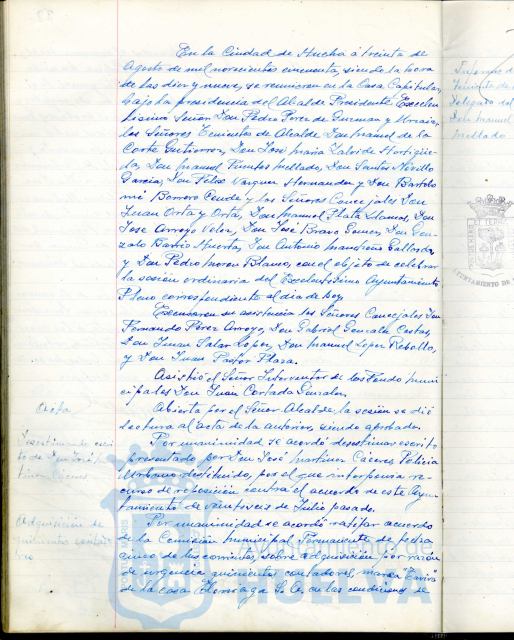 En la Ciudad de Huelva á treinta de
Agosto de mil novecientos cincuenta, siendo la hora
de las diez y nueve, se reunieron en la Casa Capitular,
bajo la presidencia del Alcalde Presidente Excelen
tisimo Señor Don Pedro Perez de Guzman y Urzaiz,
los Señores Tenientes de Alcalde Don Manuel de la
Corte Gutierrez, Don José Maria Zalvide Hortigüe
la, Don Manuel Fuentes Mellado, Don Santos Novillo
Garcia, Don Felix Vazquez Hernandez y Don Bartolo
mé Borrero Conde y los Señores Concejales Don
Juan Orta y Orta, Don Manuel Plata Llamas, Don
Jose Arroyo Velez, Don José Bravo Gomez, Don Gon
zalo Barrio Huerta, Don Antonio Gallardo
y Don Pedro Moron Blanco, con el objeto de celebrar
la sesión ordinaria del Excelentisimo Ayuntamiento
Pleno correspondiente al dia de hoy.
Excusaron su asistencia los Señores Concejales Don
Fernando Pérez Arroyo, Don Gabriel Gonzalez Costas,
Don Juan Salas Lopez, Don Manuel Lopez Rebollo,
y Don Juan Pastor Plaza.
Asistió el Señor Interventor de los Fondos muni
cipales Don Juan Cortada Gonzalez.
Acta
Abierta por el Señor Alcalde la sesión se dió
lectura al acta de la anterior, siendo aprobada.
Desestimando escri
to de Don José Mar
tinez Cáceres
Por unanimidad se acordó desestimar escrito
presentado por Don José Martinez Cáceres, Policia
Urbano destituido, por el que interponia re
curso de reposición contra el acuerdo de este Ayun
tamiento de veintiseis de Julio pasado.
Adquisición de
quinientos conta
Por unanimidad se acordó ratificar acuerdo
de la Comisión Municipal Permanente de fecha
cinco de los corrientes, sobre adquisición por razón
de urgencia quinientos contadores, marca "Tavira"
de la casa S. A. en las condiciones de
Don Manuel
Mellado
AYUNTAMIENTO DE
HUELVA